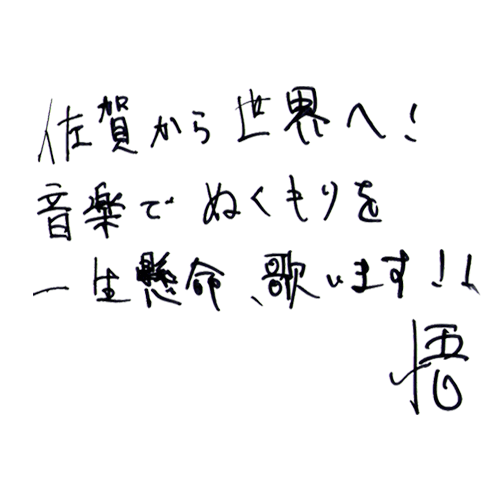 佐賀から世界へ!
音楽で ぬくもりを
一生懸命、歌います!!
悟